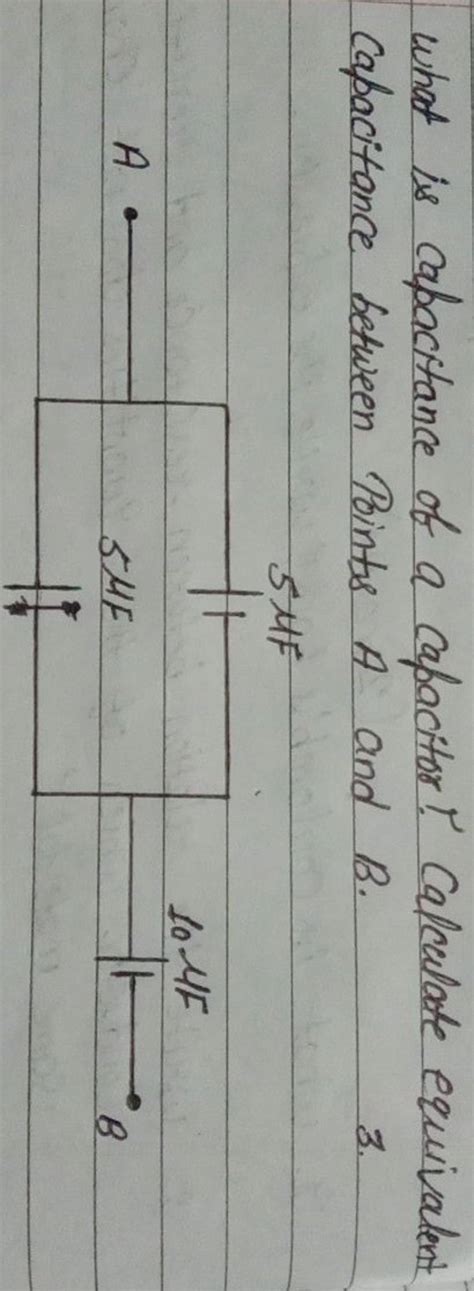 what is capacitance of a capacitor? Calculate equivalent
capacitance between Points A and B. 3.
5 μF
A
5 μF
10 μF
B